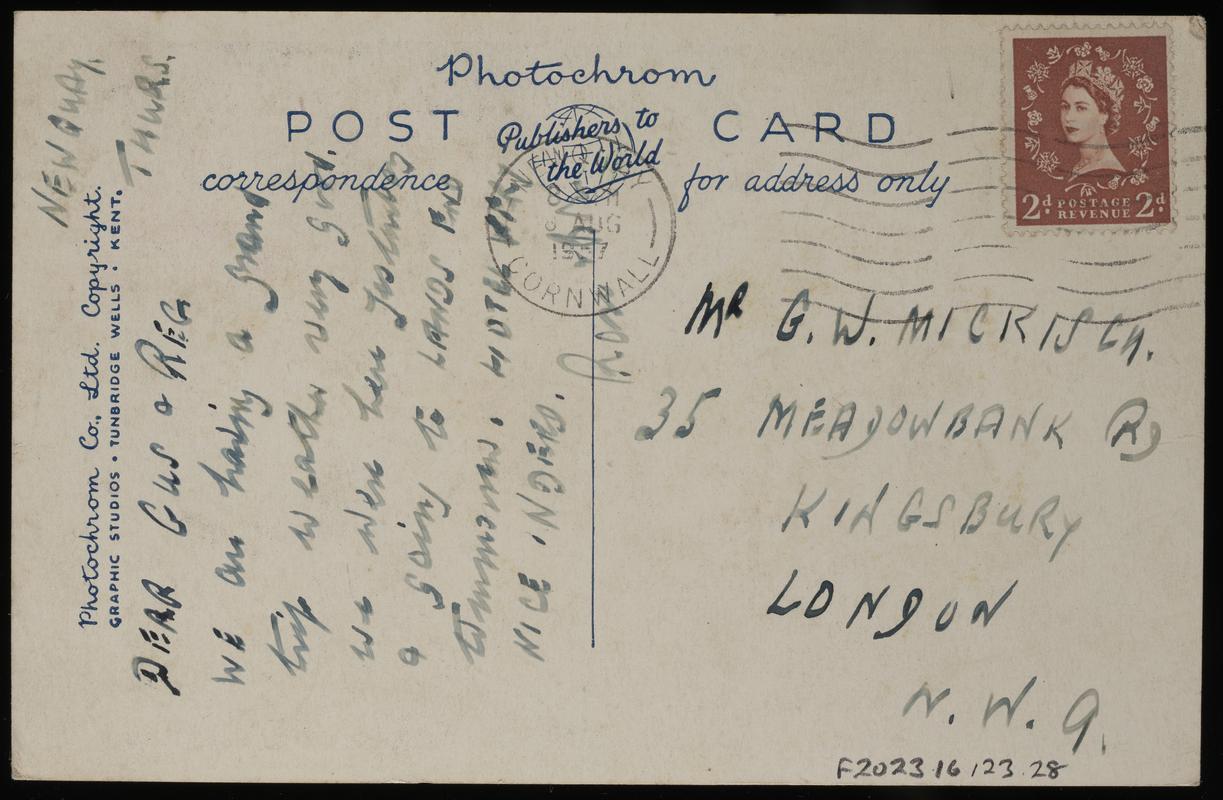 Photochrom
POST CARD
Publishers to
the World
correspondence
for address only
2d POSTAGE 2d
REVENUE
8 AUG
1957
CORNWALL
Photochrom Co., Ltd. Copyright.
GRAPHIC STUDIOS • TUNBRIDGE WELLS • KENT.
NEWQUAY.
THURS.
DEAR GUS & REG
WE are having a grand
trip weather very good.
we were here yesterday
& going to LANDS END
tomorrow. HOTEL
NICE INDEED.
Mr G. W. MICKISCH.
35 MEADOWBANK RD
KINGSBURY
LONDON
N. W. 9.
F2023.16.123.28